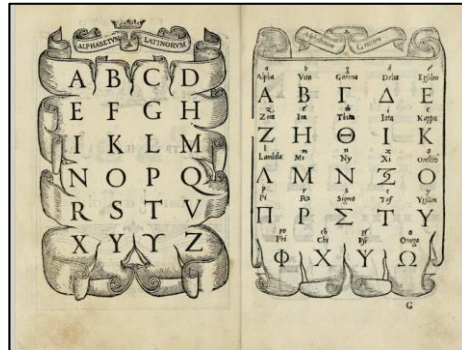 ALPHABETVM LATINORVM
A B C D
E F G H
I K L M
N O P Q
R S T V
X Y ϒ Z
Alphabetum Græcum
a b g d e
Alpha Vita Gamma Delta Epsilon
Α Β Γ Δ Ε
Zita Ita Thita Iota Kappa
Ζ Η Θ Ι Κ
l m n x o
Lambda My Ny Xi
Λ Μ Ν Ξ Ο
p r s t y
Pi Ro Sigma Taf Ypsilon
Π Ρ Σ Τ Υ
ph ch ps o
Phi Chi Psi Omega
Φ Χ Ψ Ω
G